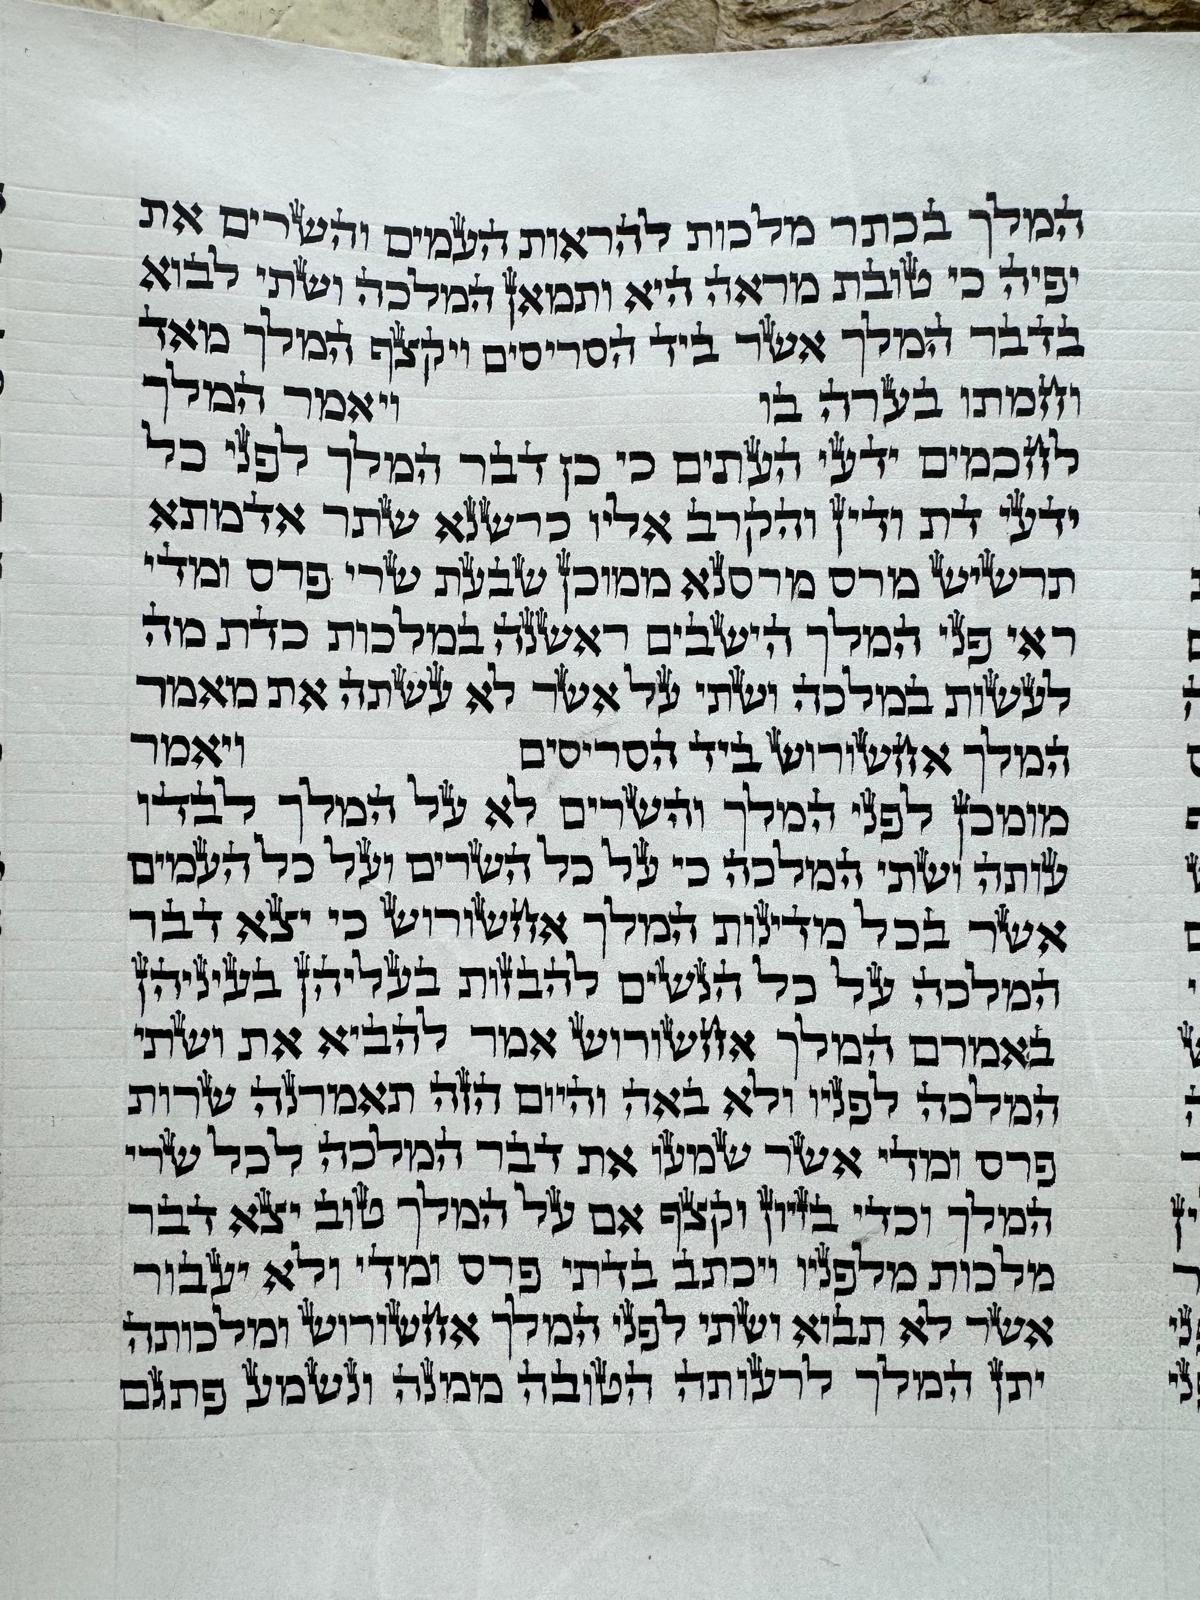 המלך בכתר מלכות להראות העמים והשרים את
יפיה כי טובת מראה היא ותמאן המלכה ושתי לבוא
בדבר המלך אשר ביד הסריסים ויקצף המלך מאד
וחמתו בערה בו ויאמר המלך
לחכמים ידעי העתים כי כן דבר המלך לפני כל
ידעי דת ודין והקרב אליו כרשנא שתר אדמתא
תרשיש מרס מרסנא ממוכן שבעת שרי פרס ומדי
ראי פני המלך הישבים ראשנה במלכות כדת מה
לעשות במלכה ושתי על אשר לא עשתה את מאמר
המלך אחשורוש ביד הסריסים ויאמר
מומכן לפני המלך והשרים לא על המלך לבדו
עותה ושתי המלכה כי על כל השרים ועל כל העמים
אשר בכל מדינות המלך אחשורוש כי יצא דבר
המלכה על כל הנשים להבזות בעליהן בעיניהן
באמרם המלך אחשורוש אמר להביא את ושתי
המלכה לפניו ולא באה והיום הזה תאמרנה שרות
פרס ומדי אשר שמעו את דבר המלכה לכל שרי
המלך וכדי בזיון וקצף אם על המלך טוב יצא דבר
מלכות מלפניו ויכתב בדתי פרס ומדי ולא יעבור
אשר לא תבוא ושתי לפני המלך אחשורוש ומלכותה
יתן המלך לרעותה הטובה ממנה ונשמע פתגם